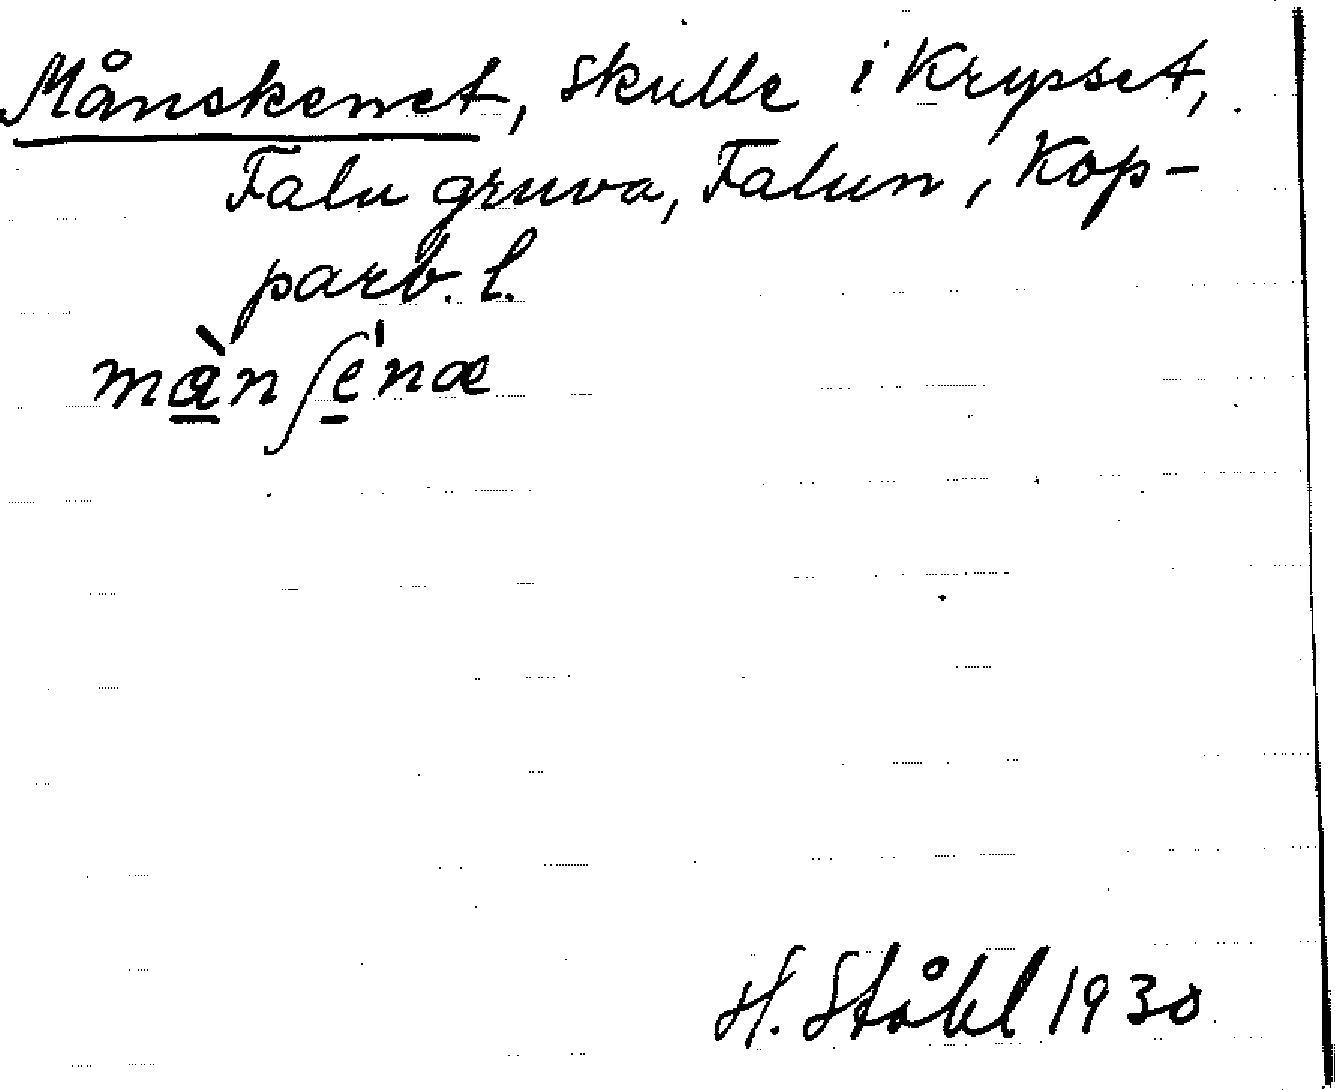 Månskenet, skulle i Krysset,
Falu gruva, Falun, Kop-
parb. l.
H. Ståhl 1930